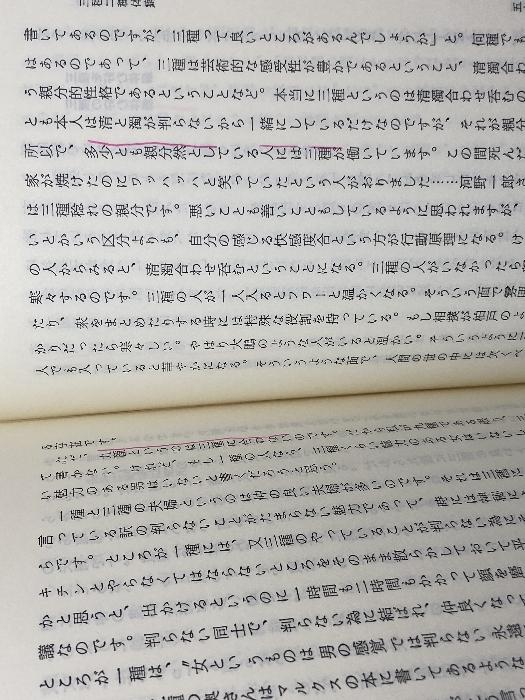 書いてあるのですが、三種って良いところがあるんでしょうか」と。何種でも
はあるのであって、三種は芸術的な感受性が豊かであるということ、清濁合わ
う親分的性格であるということなど。本当に三種というのは清濁合わせ呑むの
とも本人は清と濁が判らないから一緒にしているだけなのですが、それが親分
所以で、多少とも親分然としている人には三種が働いています。この間死んだ
家が焼けたのにワッハッハと笑っていたという人がおりました……河野一郎さ
は三種捻れの親分です。悪いことも善いこともしているように思われますが、
いとかいう区分よりも、自分の感じる快感度合という方が行動原理になる。け
の人からみると、清濁合わせ呑むということになる。三種の人がいなかったら
寒々するのです。三種の人が一人入るとフワーと温かくなる。そういう面で
だり、衆をまとめたりする時には特殊な役割を持っている。もし相撲が柏戸の
かりだったら寒々しい。やはり大鵬のような人がいると温かい。そういうように
人でも入っていると華やかになる。そういうような面で、人間の世の中には欠くべ
る才能です。
て書かない。けれど、もし一種の人なら、三種くらい魅力のある女はいない
い魅力のある男はいないと書くだろうと思う。
一種と三種の夫婦というのは仲の良い夫婦が多いのです。それは三種に
言っている訳の判らないことがたまらない魅力であって、
らです。ところが一種には、又三種のやっていることが判らない為に
キチンとやらなくてはならないところをそのまま散らかしておいて平
かと思うと、出かけるというのに一時間も二時間もかかって顔を
議なのです。判らない同士で、判らない為に結ばれ、仲良くなって
ところが一種は、〝女というものは男の感覚では判らない永遠
奥さんはマルクスの本に書いてあるような